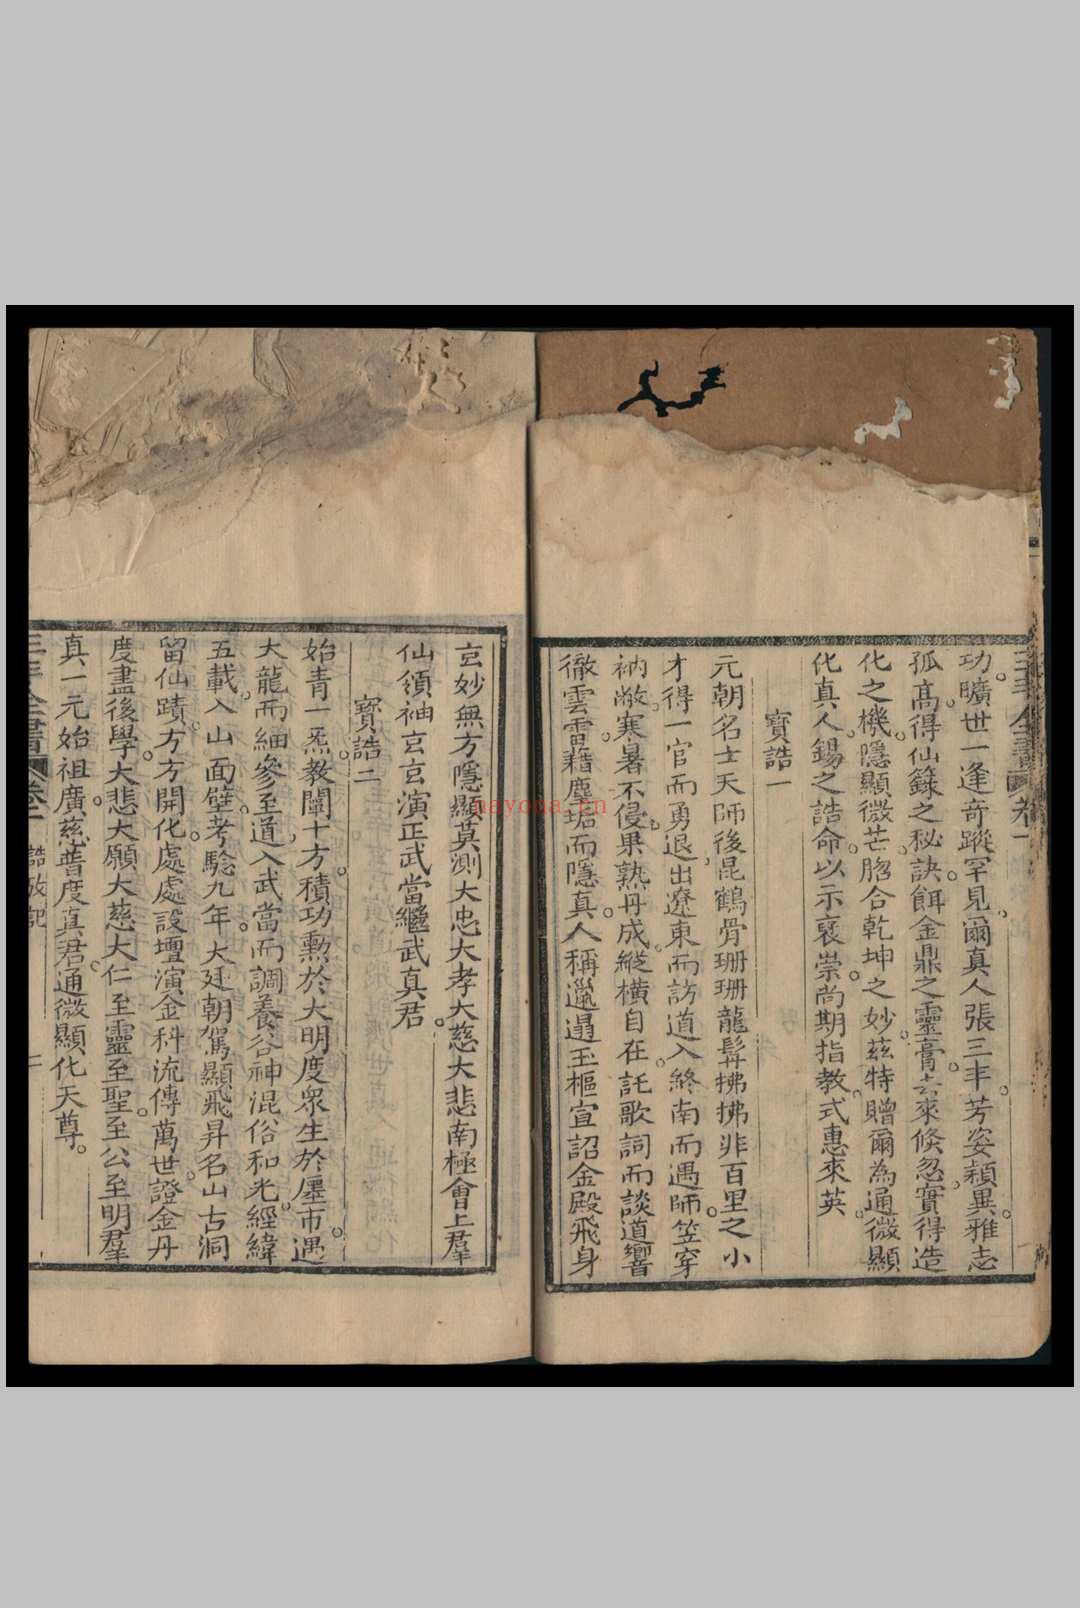 三丰全書 卷一
功曠世一逢奇蹤罕見爾真人張三丰芳姿穎異雅志
孤高得仙籙之秘訣餌金鼎之靈膏去來倏忽實得造
化之機隱顯微芒脗合乾坤之妙茲特贈爾為通微顯
化真人錫之誥命以示褒崇尚期指教式惠來英
寶誥一
元朝名士天師後昆鶴骨珊珊龍髯拂拂非百里之小
才得一官而勇退出遼東而訪道入終南而遇師笠穿
衲敝寒暑不侵果熟丹成縱橫自在託歌詞而談道響
徹雲霄藉塵垢而隱真人稱邋遢玉樞宣詔金殿飛身
玄妙無方隱顯莫測大忠大孝大慈大悲南極會上羣
仙領袖玄玄演正武當繼武真君
寶誥二
始青一炁教闡十方積功勳於大明度衆生於廛市遇
大龍而細參至道入武當而調養谷神混俗和光經緯
五載入山面壁考驗九年大廷朝駕顯飛昇名山古洞
留仙蹟方方開化處處設壇演金科流傳萬世證金丹
度盡後學大悲大願大慈大仁至靈至聖至公至明羣
真一元始祖廣慈普度真君通微顯化天尊
三丰全書 卷一 誥敕記
nayona.cn